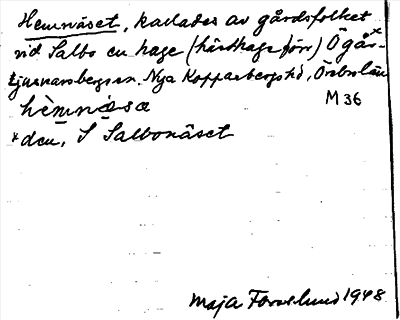 Hemnäset, kallades av gårdsfolket
vid Salbo en hage (hästhage förr) Ögår-*
Ljusnarsbergs sn. Nya Kopparbergs hd, Örebro län
hèmnä̀sa M 36
*den, S Salbonäset
Maja Forsslund 1948